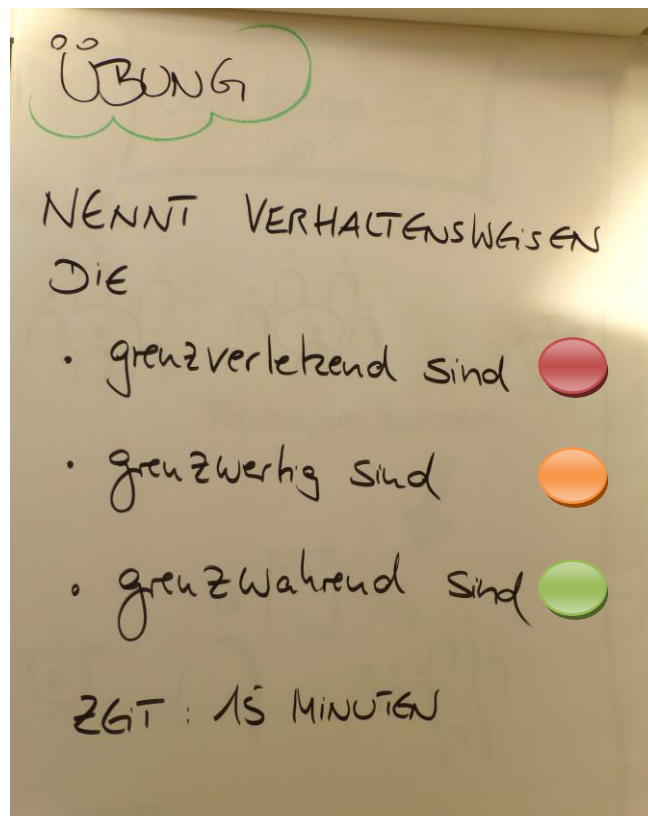 ÜBUNG
NENNT VERHALTENSWEISEN
DIE
• grenzverletzend sind
• grenzwertig sind
• grenzwahrend sind
ZEIT : 15 MINUTEN